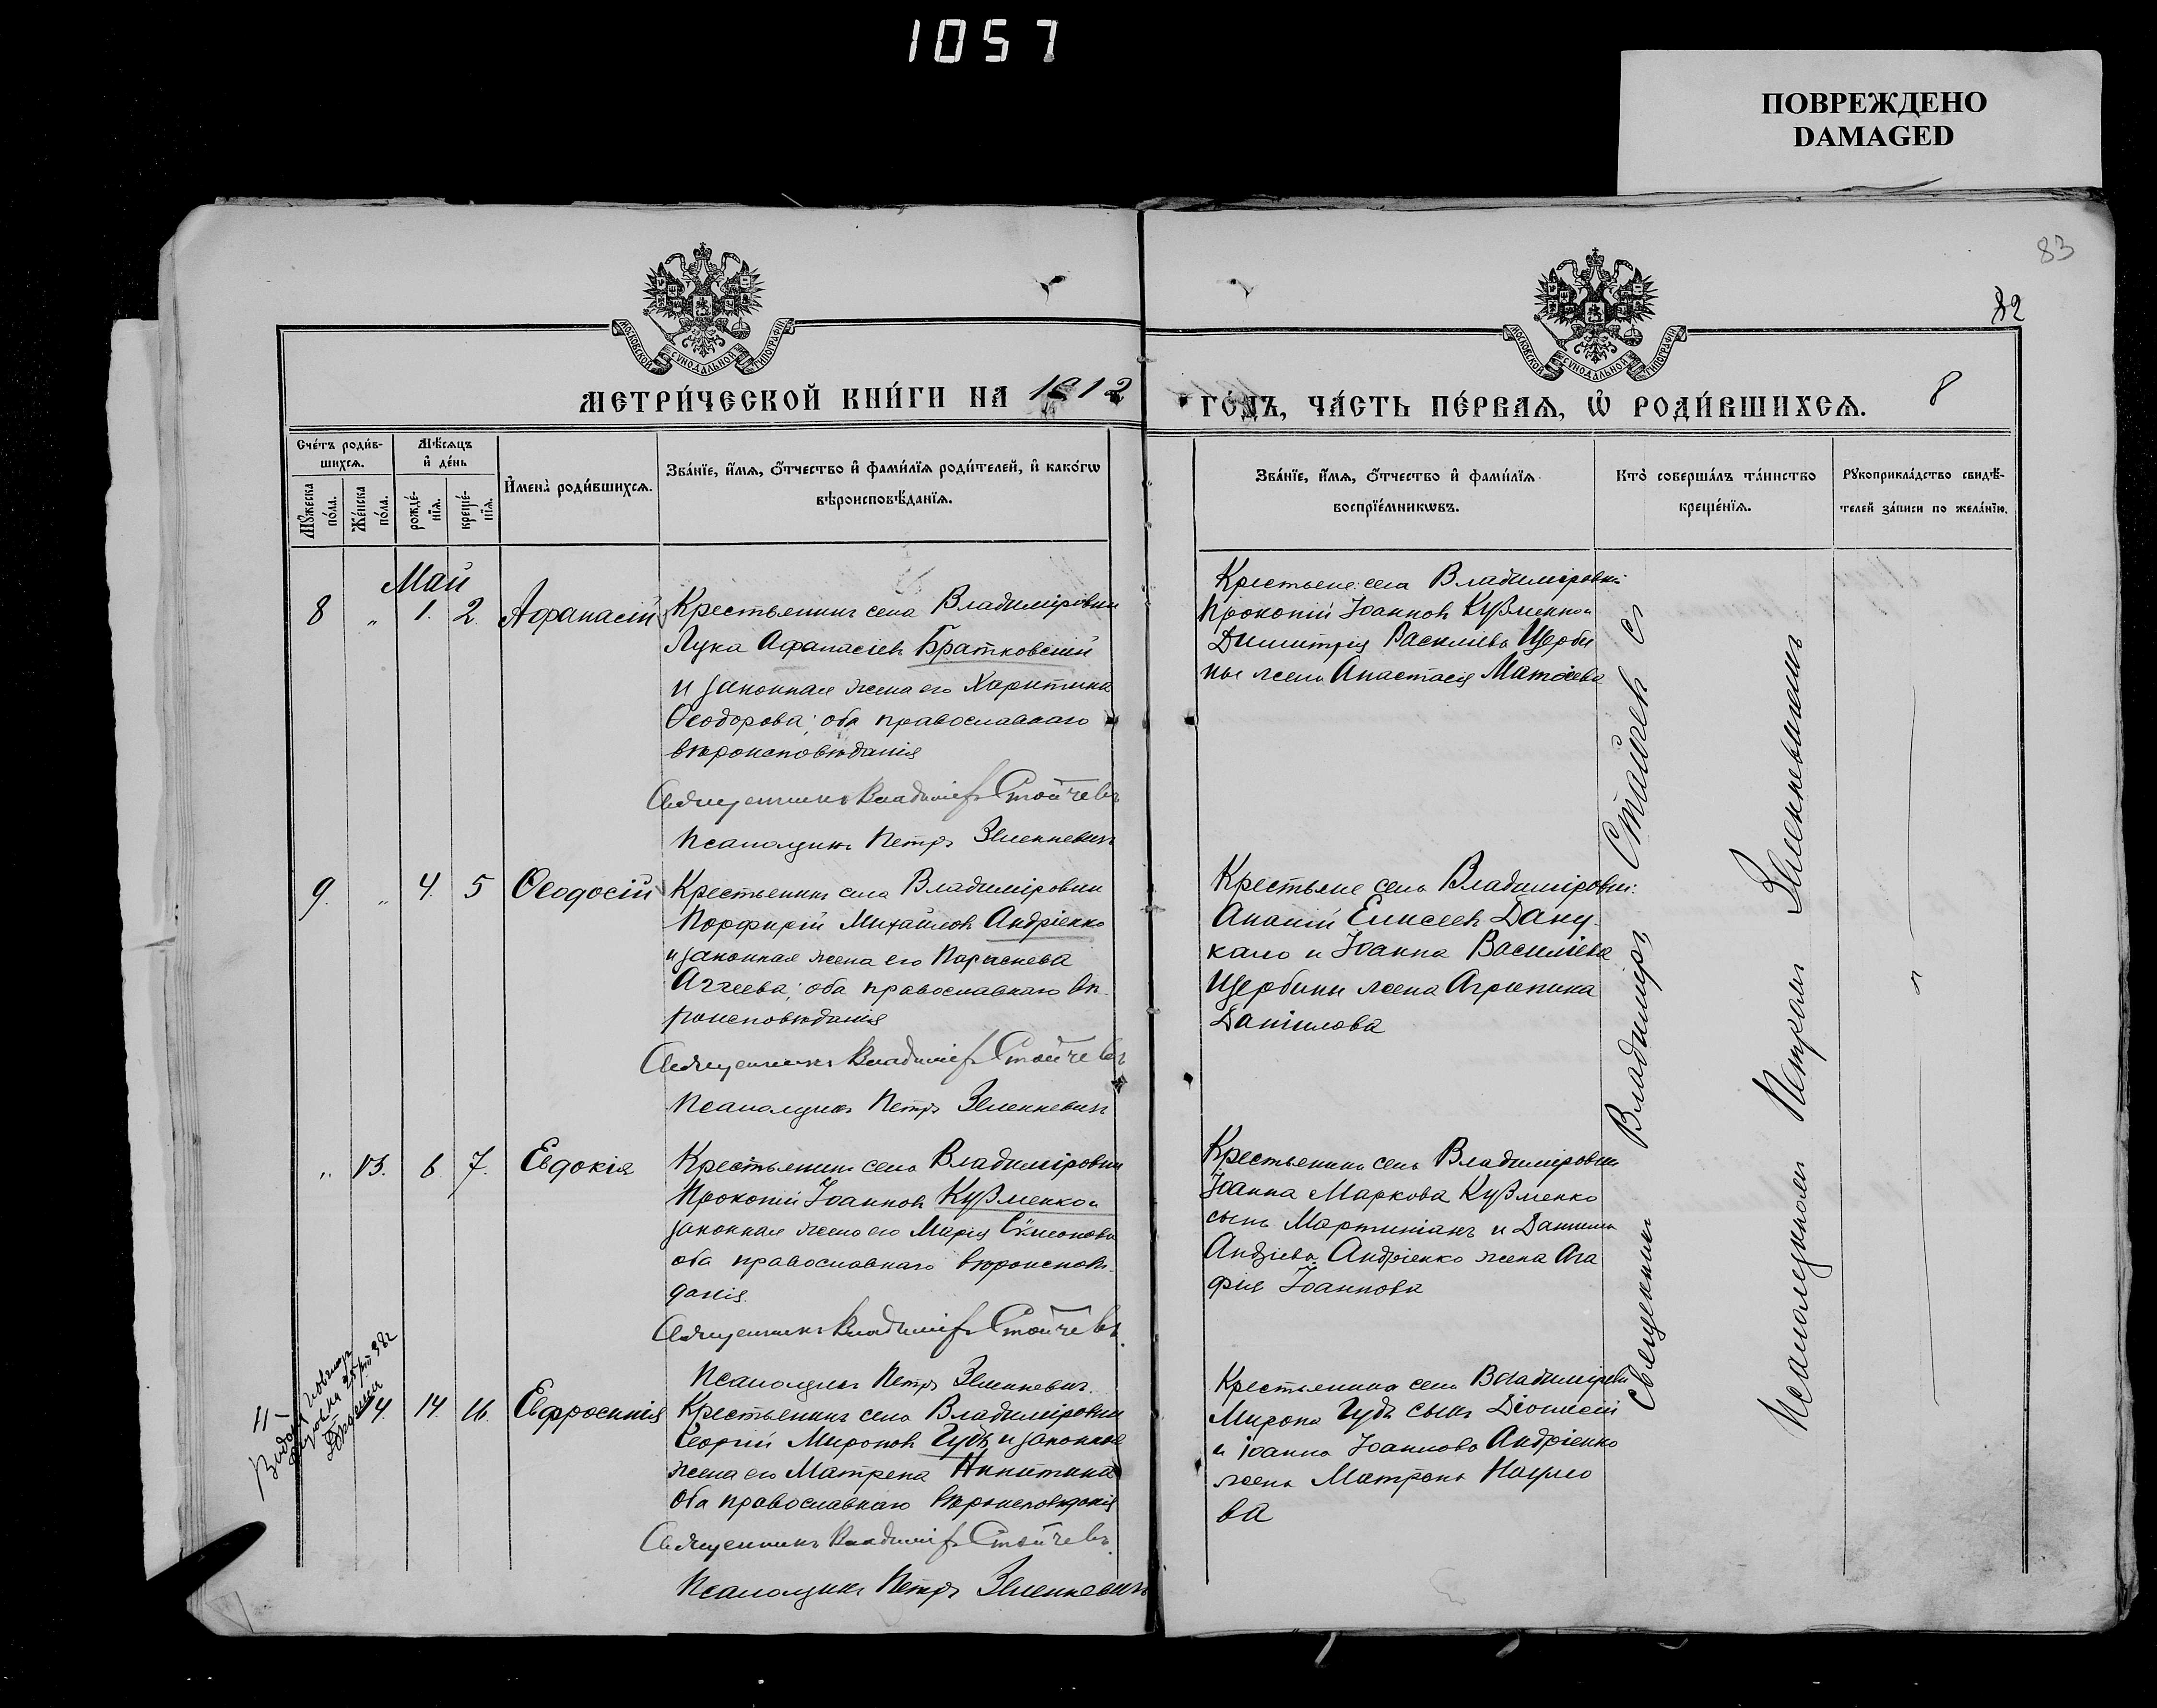 1057
ПОВРЕЖДЕНО
DAMAGED
83
82
МОСКОВСКОЙ СѴНОДАЛЬНОЙ ТИПОГРАФІИ
МОСКОВСКОЙ СѴНОДАЛЬНОЙ ТИПОГРАФІИ
МЕТРИ́ЧЕСКОЙ КНИ́ГИ НА 1912
ГО́ДЪ, ЧА́СТЬ ПЕ́РВАѦ, Ѽ РОДИ́ВШИХСѦ.
8
Счéтъ роди́в-
шихсѧ.
Мѣ́сѧцъ
и҆ де́нь
Мꙋ́жеска
по́ла.
Же́нска
по́ла.
рожде́-
нїѧ.
креще́-
нїѧ.
И҆мена̀ роди́вшихсѧ.
Зва́нїе, и҆́мѧ, ѻ҆́тчество и҆ фами́лїѧ роди́телей, и҆ како́гѡ
вѣроисповѣ́данїѧ.
Зва́нїе, и҆́мѧ, ѻ҆́тчество и҆ фами́лїѧ
воспрїе́мникѡвъ.
Кто̀ соверша́лъ та́инство
креще́нїѧ.
Рꙋкоприкла́дство свидѣ́-
телей за́писи по жела́нїю.
Май
8 „ 1. 2. Афанасій
Крестьянинъ села Владиміровки
Лука Афанасіевъ Братковскій
и законная жена его Харитина
Ѳеодорова; оба православнаго
вѣроисповѣданія
Священникъ Владиміръ Стойчевъ
Псаломщикъ Петръ Зеленкевичъ
Крестьяне села Владиміровки:
Прокопій Іоанновъ Кузменко и
Димитрія Василіева Щерби
ны жена Анастасія Матѳіева
9. „ 4. 5 Ѳеодосій
Крестьянинъ села Владиміровки
Порфирій Михайловъ Андріенко
и законная жена его Параскева
Аггеева; оба православнаго вѣ-
роисповѣданія
Священникъ Владиміръ Стойчевъ
Псаломщикъ Петръ Зеленкевичъ
Крестьяне села Владиміровки:
Ананій Елисеевъ Даку-
кало и Іоанна Василіева
Щербины жена Агрипина
Даніилова
„ 13. 6. 7. Евдокія
Крестьянинъ села Владиміровки
Прокопій Іоанновъ Кузменко и
законная жена его Марія Симонова
оба православнаго вѣроисповѣ-
данія.
Священникъ Владиміръ Стойчевъ.
Псаломщикъ Петръ Зеленкевичъ.
Крестьянина села Владиміровки
Іоанна Маркова Кузменко
сынъ Мартиніанъ и Даніила
Андріенко жена Ага
фія Іоаннова
14. 16. Евфросинія
Крестьянинъ села Владиміровки
Георгій Мироновъ Гудь и законная
жена его Матрена Никитина
оба православнаго вѣроисповѣданія
Священникъ Владиміръ Стойчевъ.
Псаломщикъ Петръ Зеленкевичъ
Крестьянина села Владиміровки
Мирона Гудь сынъ Діонисій
и Іоанна Іоаннова Андріенко
жена Матрона Наумо
ва
Священникъ Владиміръ Стойчевъ съ
Псаломщикомъ Петромъ Зеленкевичемъ